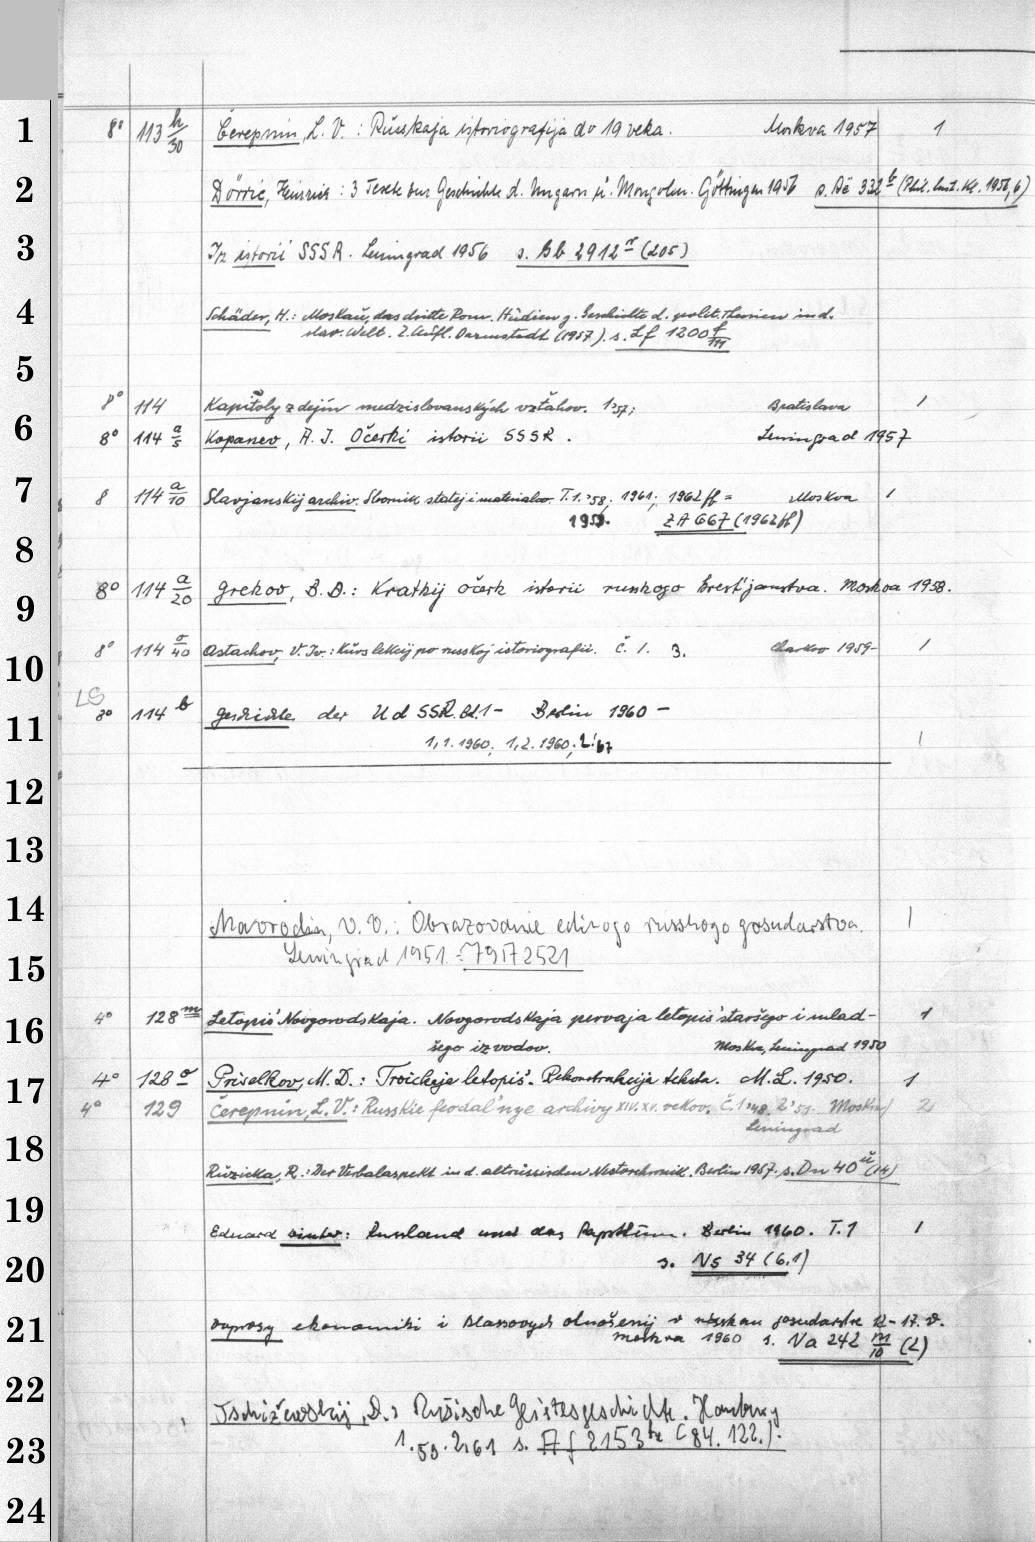 1 8° 113 h/30 Čerepnin, L. V. : Russkaja istoriografija do 19 veka. Moskva 1957 1
2 Dörrie, Heinrich : 3 Texte zur Geschichte d. Ungarn u. Mongolen. Göttingen 1956 s. 332 b (Phil. hist. Kl. 1956, 6)
3 Iz istorii SSSR. Leningrad 1956 s. Bb 2912 n (205)
4 Schäder, H.: Moskau, das dritte Rom. Studien z. Geschichte d. polit. Theorien in d.
slav. Welt. 2. Aufl. Darmstadt (1957). s. Lf 1200 f/m
5
8° 114 Kapitoly z dejín medzislovanských vzťahov. 1957; Bratislava 1
6 8° 114 a/5 Kopanev, A. I. Očerki istorii SSSR. Leningrad 1957
7 8 114 a/10 Slavjanskij archiv. Sbornik statej i materialov. T. 1. '58; 1961; 1962 ff = Moskva 1
1959. ZA 667 (1962 ff)
8
9 8° 114 a/20 Grekov, B. D.: Kratkij očerk istorii russkogo krest'janstva. Moskva 1958.
10 8° 114 a/40 Astachov, V. Iv.: Kurs lekcij po russkoj istoriografii. Č. 1. 3. Charkov 1959- 1
LS
11 8° 114 b Geschichte der UdSSR. Bd. 1 - Berlin 1960 -
1,1. 1960; 1,2. 1960; 2.'67 1
12
13
14 Mavrodin, V. V.: Obrazovanie edinogo russkogo gosudarstva. 1
15 Leningrad 1951. = 79 17 2521
16 4° 128 m Letopis' Novgorodskaja. Novgorodskaja pervaja letopis' staršego i mlad- 1
šego izvodov. Moskva, Leningrad 1950
17 4° 128 o Priselkov, M. D.: Troickaja letopis'. Rekonstrukcija teksta. M. L. 1950. 1
4° 129 Čerepnin, L. V.: Russkie feodal'nye archivy XIV. XV. vekov. Č. 1 '48. 2 '51. Moskva 2
Leningrad
18 Růžička, R.: Der Verbalaspekt in d. altrussischen Nestorchronik. Berlin 1957. s. Du 40 u (14)
19 Eduard Winter: Russland und das Papsttum. Berlin 1960. T. 1 1
20 s. Ns 34 (6,1)
21 Voprosy ekonomiki i klassovych otnošenij v russkom gosudarstve 12-17. v.
Moskva 1960 s. Va 242 m/10 (2)
22 Tschižewskij, D.: Russische Geistesgeschichte. Hamburg
23 1. 59. 2. 61 s. Af 2153 (84. 122.).
24